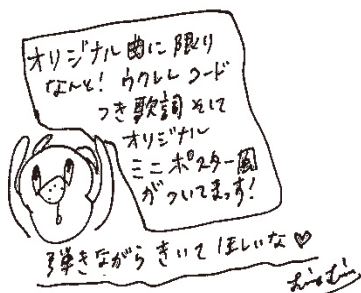 オリジナル曲に限り
なんと！ウクレレコード
つき歌詞そして
オリジナル
ミニポスター風
がついてまっす！
弾きながらきいてほしいな♡